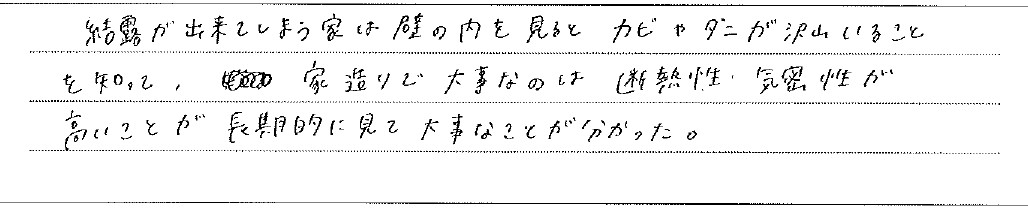 結露が出来てしまう家は壁の内を見るとカビやダニが沢山いること
を知って、家造りで大事なのは断熱性・気密性が
高いことが長期的に見て大事なことが分かった。